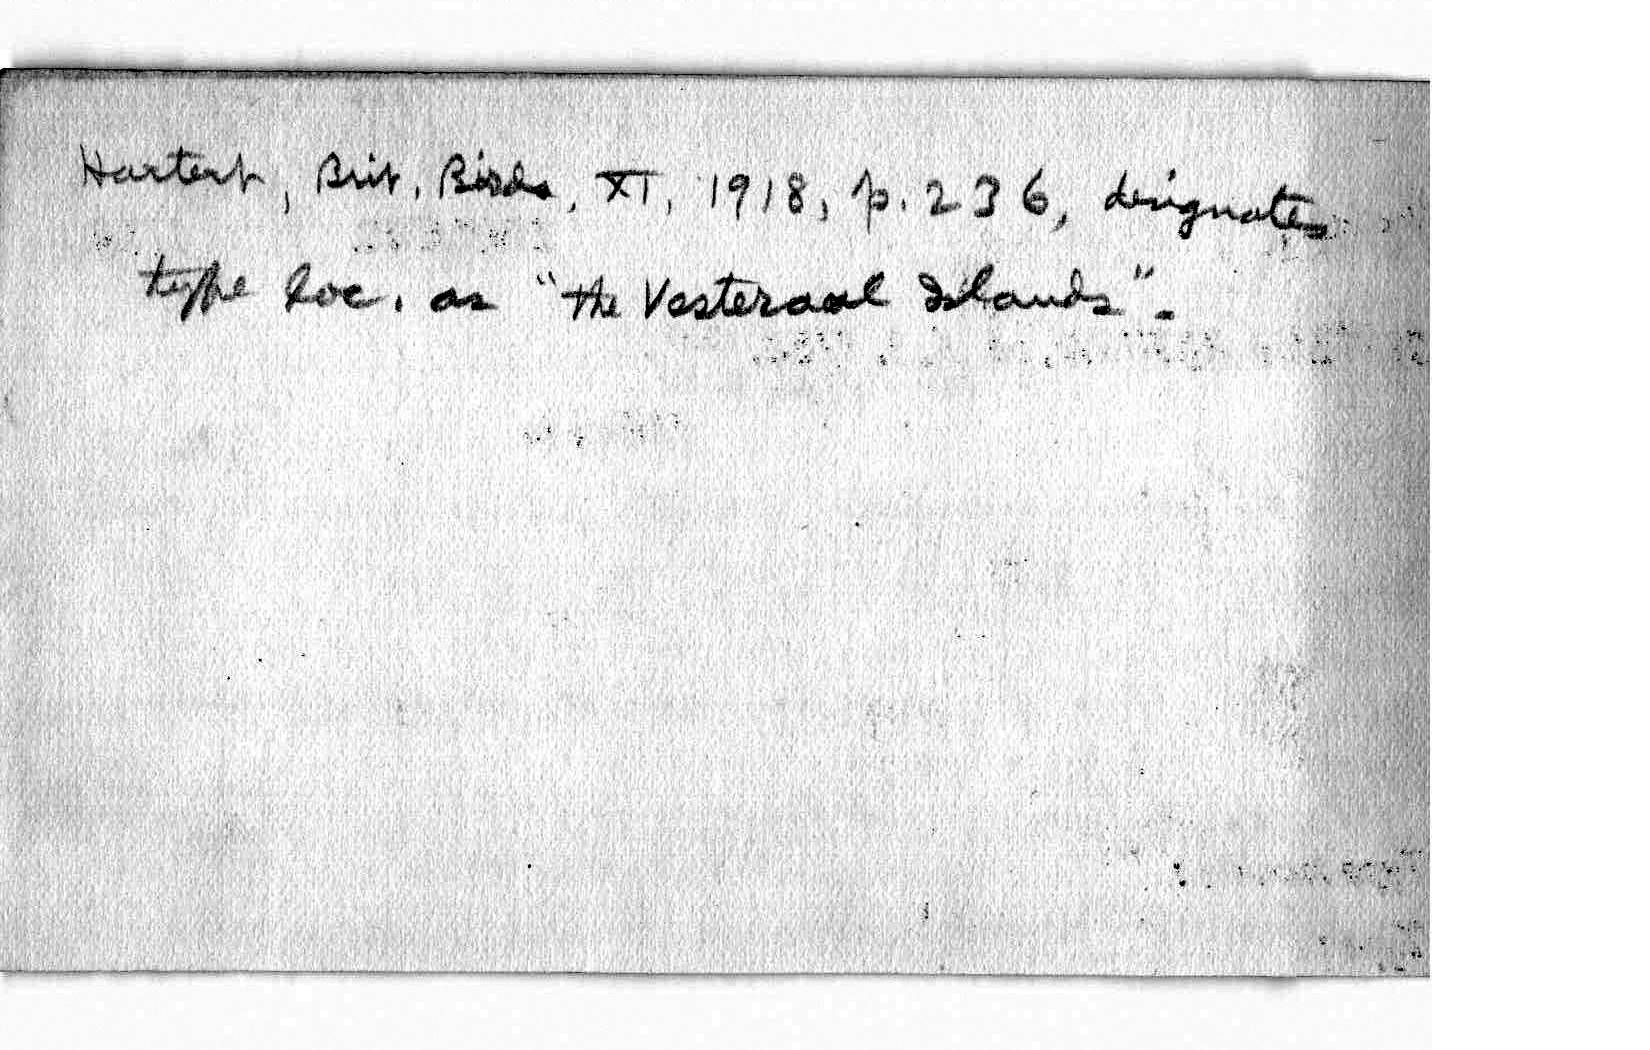 Hartert, Brit. Birds, XI, 1918, p. 236, designates
type loc. as "the Vesteraal Islands".